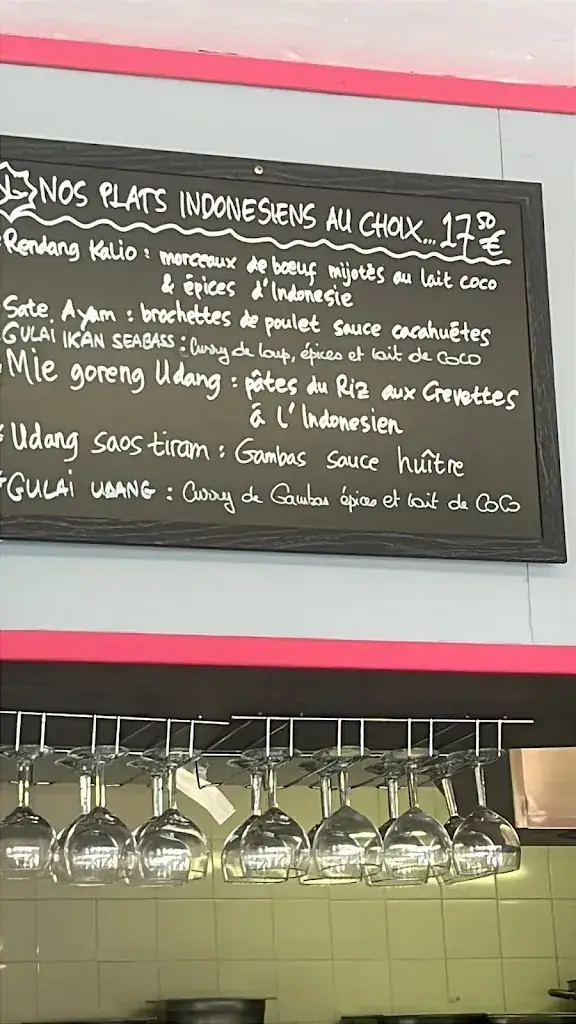 NOS PLATS INDONESIENS AU CHOIX... 17 50 €
Rendang Kalio : morceaux de bœuf mijotés au lait coco
& épices d'Indonesie
Sate Ayam : brochettes de poulet sauce cacahuètes
GULAI IKAN SEABASS : Curry de loup, épices et lait de coco
Mie goreng Udang : pâtes du Riz aux Crevettes
à l'Indonesien
Udang saos tiram : Gambas sauce huître
GULAI UDANG : Curry de Gambas épices et lait de CoCo